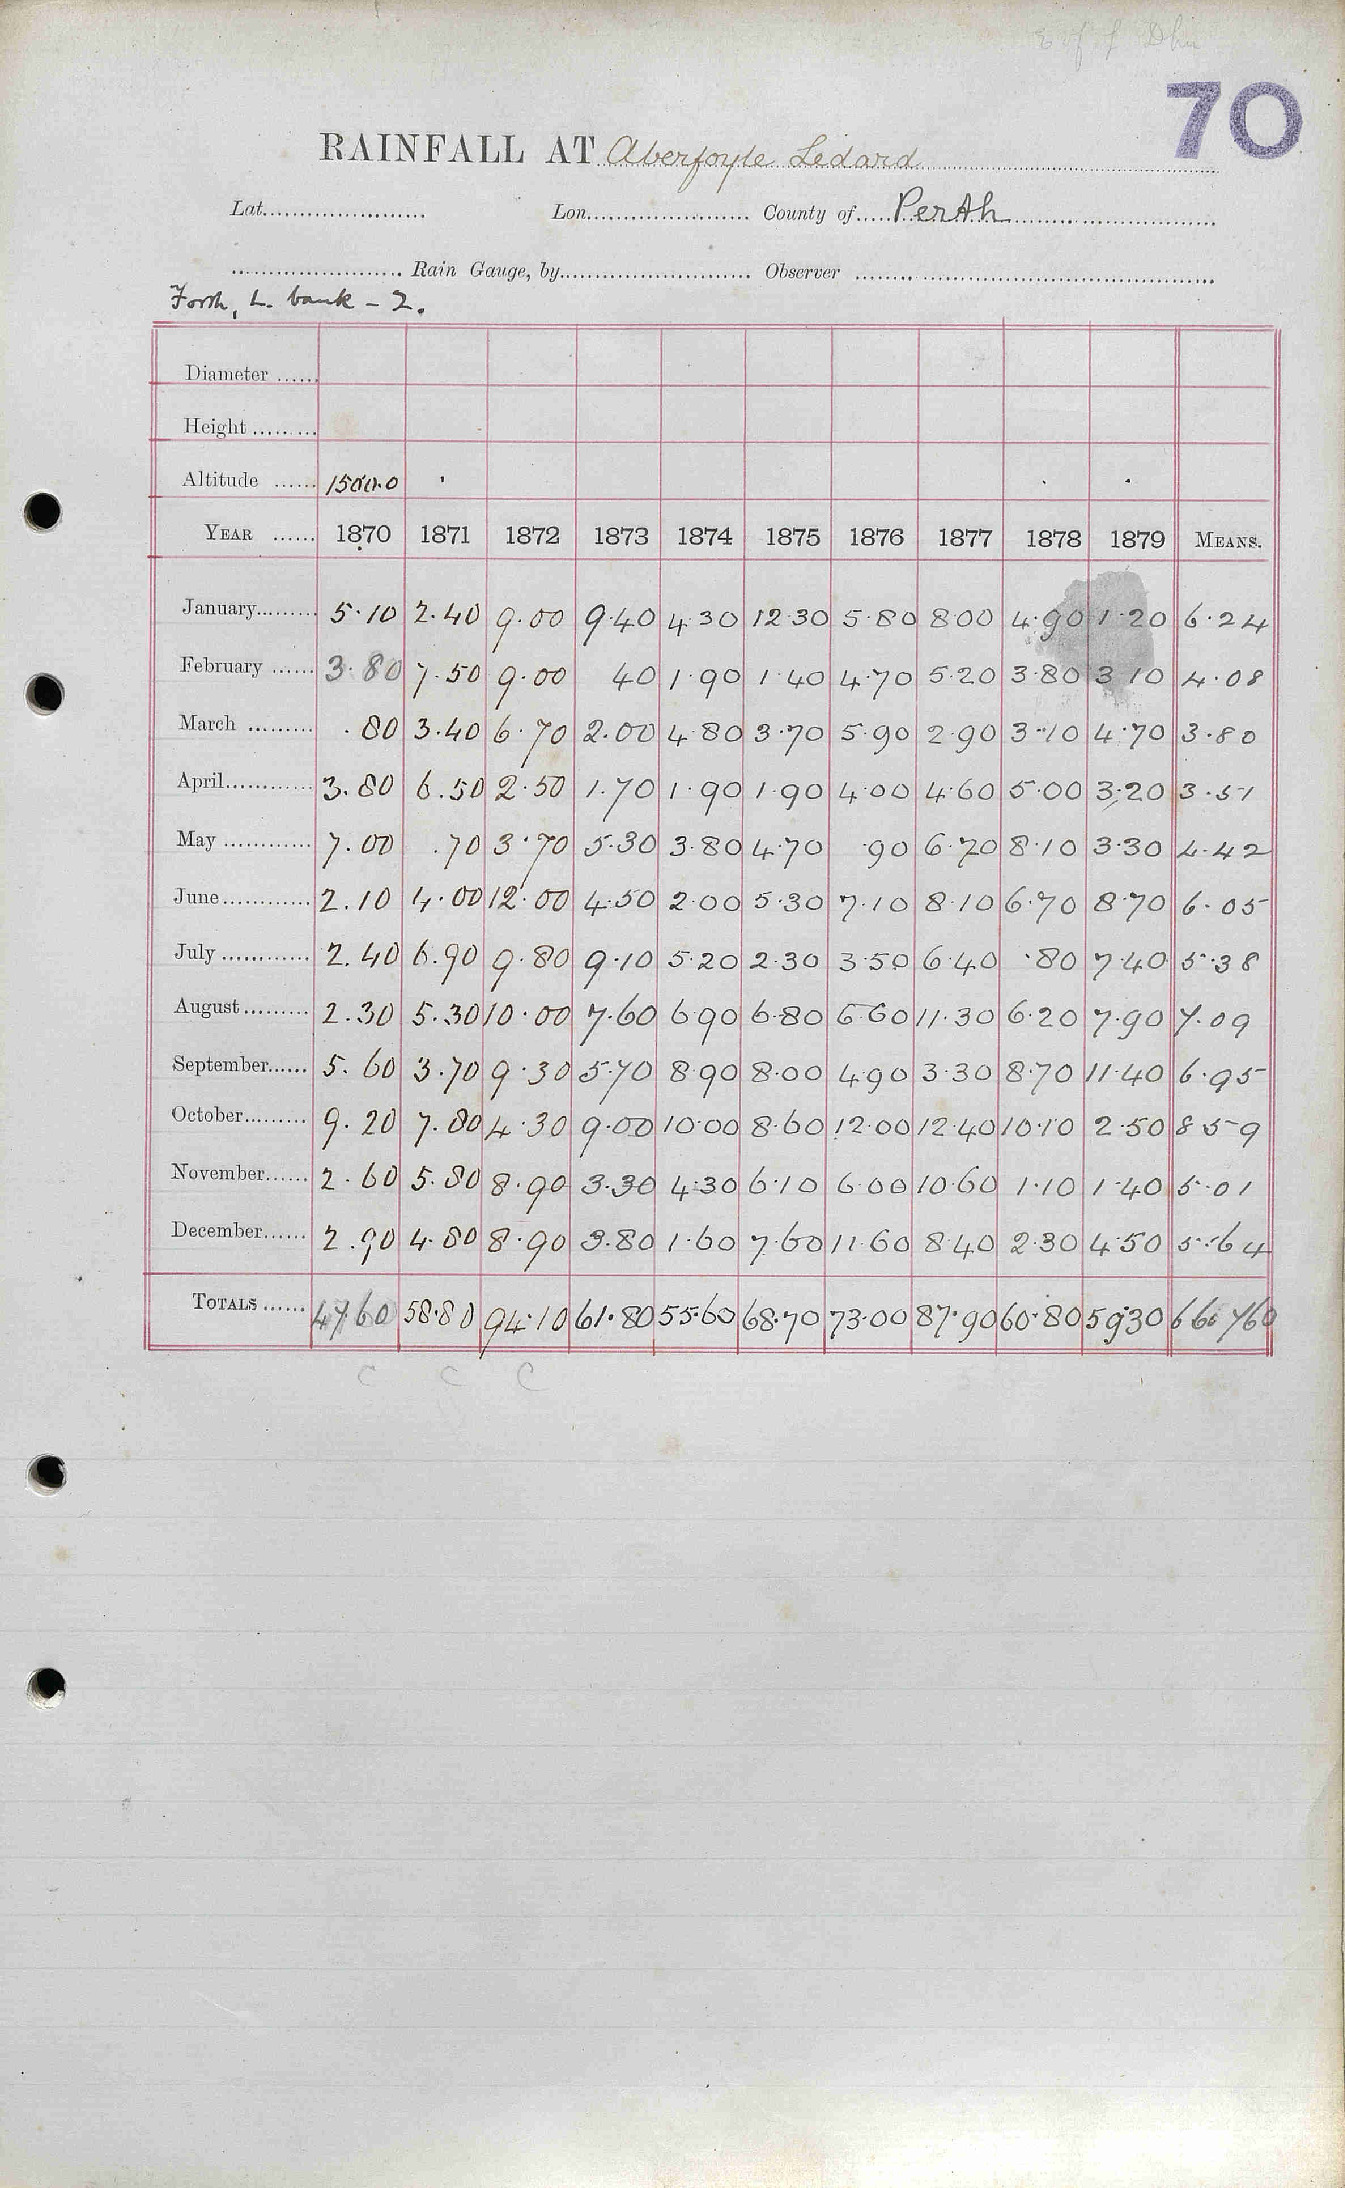 70
RAINFALL AT Aberfoyle Ledard
Lat. Lon. County of Perth
Rain Gauge, by Observer
Forth, L. bank - 2.
Diameter
Height
Altitude 1500.0
YEAR 1870 1871 1872 1873 1874 1875 1876 1877 1878 1879 MEANS.
January 5.10 2.40 9.00 9.40 4.30 12.30 5.80 8.00 4.90 1.20 6.24
February 3.80 7.50 9.00 40 1.90 1.40 4.70 5.20 3.80 3.10 4.08
March .80 3.40 6.70 2.00 4.80 3.70 5.90 2.90 3.10 4.70 3.80
April 3.80 6.50 2.50 1.70 1.90 1.90 4.00 4.60 5.00 3.20 3.51
May 7.00 .70 3.70 5.30 3.80 4.70 .90 6.70 8.10 3.30 4.42
June 2.10 4.00 12.00 4.50 2.00 5.30 7.10 8.10 6.70 8.70 6.05
July 2.40 6.90 9.80 9.10 5.20 2.30 3.50 6.40 .80 7.40 5.38
August 2.30 5.30 10.00 7.60 6.90 6.80 6.60 11.30 6.20 7.90 7.09
September 5.60 3.70 9.30 5.70 8.90 8.00 4.90 3.30 8.70 11.40 6.95
October 9.20 7.80 4.30 9.00 10.00 8.60 12.00 12.40 10.10 2.50 8.59
November 2.60 5.80 8.90 3.30 4.30 6.10 6.00 10.60 1.10 1.40 5.01
December 2.90 4.80 8.90 3.80 1.60 7.60 11.60 8.40 2.30 4.50 5.64
TOTALS 47.60 58.80 94.10 61.80 55.60 68.70 73.00 87.90 60.80 59.30 66.760
C C C